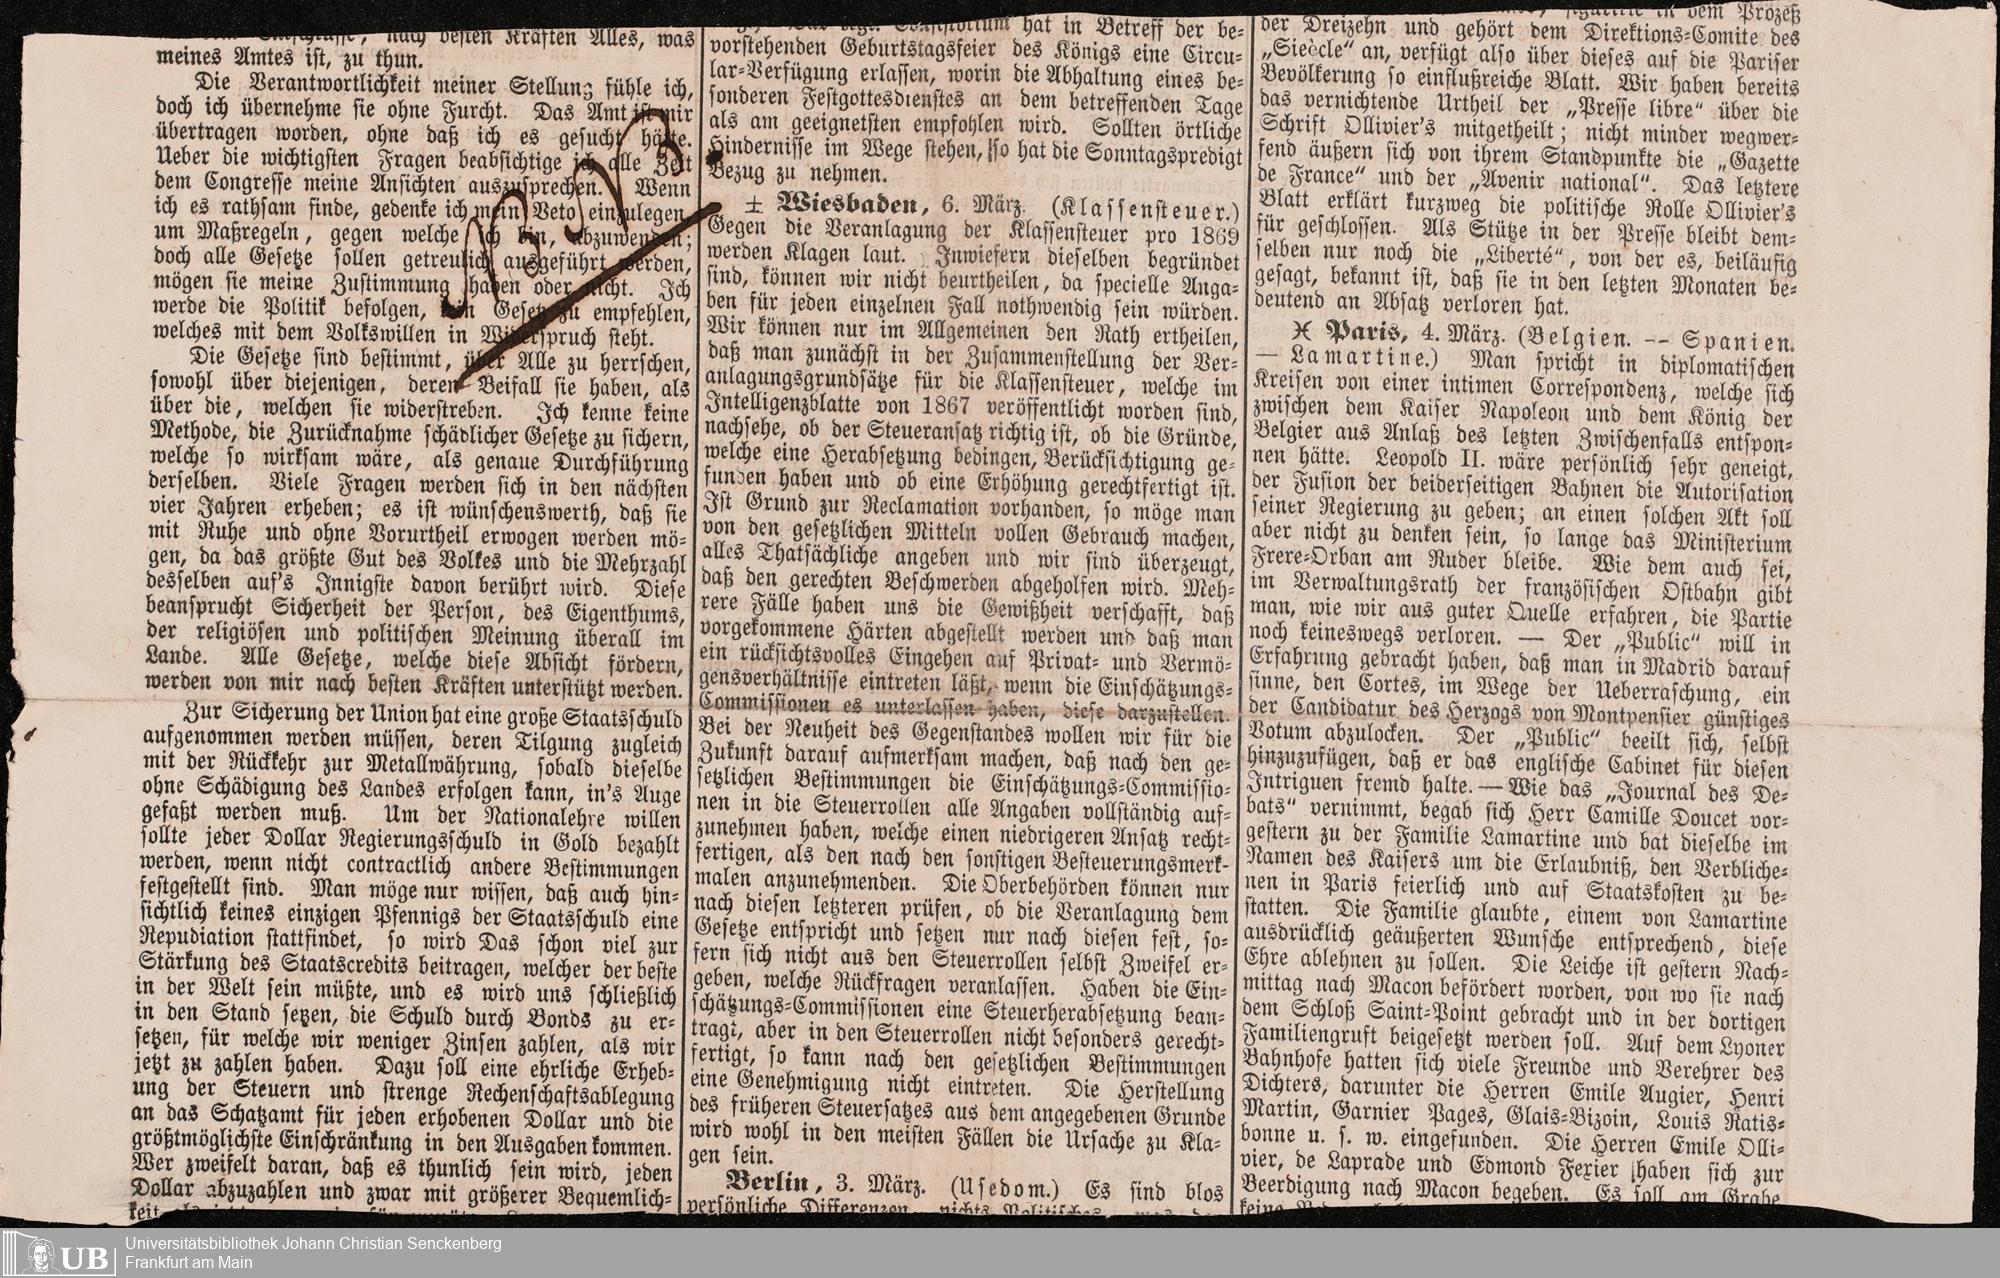 meines Amtes ist, zu thun.
Die Verantwortlichkeit meiner Stellung fühle ich,
doch ich übernehme sie ohne Furcht. Das Amt ist mir
übertragen worden, ohne daß ich es gesucht hätte.
Ueber die wichtigsten Fragen beabsichtige ich alle Zeit
dem Congresse meine Ansichten auszusprechen. Wenn
ich es rathsam finde, gedenke ich mein Veto einzulegen,
um Maßregeln, gegen welche ich bin, abzuwenden;
doch alle Gesetze sollen getreulich ausgeführt werden,
mögen sie meine Zustimmung haben oder nicht. Ich
werde die Politik befolgen, kein Gesetz zu empfehlen,
welches mit dem Volkswillen in Widerspruch steht.
Die Gesetze sind bestimmt, über Alle zu herrschen,
sowohl über diejenigen, deren Beifall sie haben, als
über die, welchen sie widerstreben. Ich kenne keine
Methode, die Zurücknahme schädlicher Gesetze zu sichern,
welche so wirksam wäre, als genaue Durchführung
derselben. Viele Fragen werden sich in den nächsten
vier Jahren erheben; es ist wünschenswerth, daß sie
mit Ruhe und ohne Vorurtheil erwogen werden mö-
gen, da das größte Gut des Volkes und die Mehrzahl
desselben auf's Innigste davon berührt wird. Diese
beansprucht Sicherheit der Person, des Eigenthums,
der religiösen und politischen Meinung überall im
Lande. Alle Gesetze, welche diese Absicht fördern,
werden von mir nach besten Kräften unterstützt werden.
Zur Sicherung der Union hat eine große Staatsschuld
aufgenommen werden müssen, deren Tilgung zugleich
mit der Rückkehr zur Metallwährung, sobald dieselbe
ohne Schädigung des Landes erfolgen kann, in's Auge
gefaßt werden muß. Um der Nationalehre willen
sollte jeder Dollar Regierungsschuld in Gold bezahlt
werden, wenn nicht contractlich andere Bestimmungen
festgestellt sind. Man möge nur wissen, daß auch hin-
sichtlich keines einzigen Pfennigs der Staatsschuld eine
Repudiation stattfindet, so wird Das schon viel zur
Stärkung des Staatscredits beitragen, welcher der beste
in der Welt sein müßte, und es wird uns schließlich
in den Stand setzen, die Schuld durch Bonds zu er-
setzen, für welche wir weniger Zinsen zahlen, als wir
jetzt zu zahlen haben. Dazu soll eine ehrliche Erheb-
ung der Steuern und strenge Rechenschaftsablegung
an das Schatzamt für jeden erhobenen Dollar und die
größtmöglichste Einschränkung in den Ausgaben kommen.
Wer zweifelt daran, daß es thunlich sein wird, jeden
Dollar abzuzahlen und zwar mit größerer Bequemlich-
hat in Betreff der be-
vorstehenden Geburtstagsfeier des Königs eine Circu-
lar-Verfügung erlassen, worin die Abhaltung eines be-
sonderen Festgottesdienstes an dem betreffenden Tage
als am geeignetsten empfohlen wird. Sollten örtliche
Hindernisse im Wege stehen, so hat die Sonntagspredigt
Bezug zu nehmen.
± Wiesbaden, 6. März. (Klassensteuer.)
Gegen die Veranlagung der Klassensteuer pro 1869
werden Klagen laut. Inwiefern dieselben begründet
sind, können wir nicht beurtheilen, da specielle Anga-
ben für jeden einzelnen Fall nothwendig sein würden.
Wir können nur im Allgemeinen den Rath ertheilen,
daß man zunächst in der Zusammenstellung der Ver-
anlagungsgrundsätze für die Klassensteuer, welche im
Intelligenzblatte von 1867 veröffentlicht worden sind,
nachsehe, ob der Steueransatz richtig ist, ob die Gründe,
welche eine Herabsetzung bedingen, Berücksichtigung ge-
funden haben und ob eine Erhöhung gerechtfertigt ist.
Ist Grund zur Reclamation vorhanden, so möge man
von den gesetzlichen Mitteln vollen Gebrauch machen,
alles Thatsächliche angeben und wir sind überzeugt,
daß den gerechten Beschwerden abgeholfen wird. Meh-
rere Fälle haben uns die Gewißheit verschafft, daß
vorgekommene Härten abgestellt werden und daß man
ein rücksichtsvolles Eingehen auf Privat- und Vermö-
gensverhältnisse eintreten läßt, wenn die Einschätzungs-
Commissionen es unterlassen haben, diese darzustellen.
Bei der Neuheit des Gegenstandes wollen wir für die
Zukunft darauf aufmerksam machen, daß nach den ge-
setzlichen Bestimmungen die Einschätzungs-Commissio-
nen in die Steuerrollen alle Angaben vollständig auf-
zunehmen haben, welche einen niedrigeren Ansatz recht-
fertigen, als den nach den sonstigen Besteuerungsmerk-
malen anzunehmenden. Die Oberbehörden können nur
nach diesen letzteren prüfen, ob die Veranlagung dem
Gesetze entspricht und setzen nur nach diesen fest, so-
fern sich nicht aus den Steuerrollen selbst Zweifel er-
geben, welche Rückfragen veranlassen. Haben die Ein-
schätzungs-Commissionen eine Steuerherabsetzung bean-
tragt, aber in den Steuerrollen nicht besonders gerecht-
fertigt, so kann nach den gesetzlichen Bestimmungen
eine Genehmigung nicht eintreten. Die Herstellung
des früheren Steuersatzes aus dem angegebenen Grunde
wird wohl in den meisten Fällen die Ursache zu Kla-
gen sein.
Berlin, 3. März. (Usedom.) Es sind blos
persönliche Differenzen
der Dreizehn und gehört dem Direktions-Comite des
„Sieècle“ an, verfügt also über dieses auf die Pariser
Bevölkerung so einflußreiche Blatt. Wir haben bereits
das vernichtende Urtheil der „Presse libre“ über die
Schrift Ollivier's mitgetheilt; nicht minder wegwer-
fend äußern sich von ihrem Standpunkte die „Gazette
de France“ und der „Avenir national“. Das letztere
Blatt erklärt kurzweg die politische Rolle Ollivier's
für geschlossen. Als Stütze in der Presse bleibt dem-
selben nur noch die „Liberté“, von der es, beiläufig
gesagt, bekannt ist, daß sie in den letzten Monaten be-
deutend an Absatz verloren hat.
Paris, 4. März. (Belgien. -- Spanien.
— Lamartine.) Man spricht in diplomatischen
Kreisen von einer intimen Correspondenz, welche sich
zwischen dem Kaiser Napoleon und dem König der
Belgier aus Anlaß des letzten Zwischenfalls entspon-
nen hätte. Leopold II. wäre persönlich sehr geneigt,
der Fusion der beiderseitigen Bahnen die Autorisation
seiner Regierung zu geben; an einen solchen Akt soll
aber nicht zu denken sein, so lange das Ministerium
Frere-Orban am Ruder bleibe. Wie dem auch sei,
im Verwaltungsrath der französischen Ostbahn gibt
man, wie wir aus guter Quelle erfahren, die Partie
noch keineswegs verloren. — Der „Public“ will in
Erfahrung gebracht haben, daß man in Madrid darauf
sinne, den Cortes, im Wege der Ueberraschung, ein
der Candidatur des Herzogs von Montpensier günstiges
Votum abzulocken. Der „Public“ beeilt sich, selbst
hinzuzufügen, daß er das englische Cabinet für diesen
Intriguen fremd halte. — Wie das „Journal des De-
bats“ vernimmt, begab sich Herr Camille Doucet vor-
gestern zu der Familie Lamartine und bat dieselbe im
Namen des Kaisers um die Erlaubniß, den Verbliche-
nen in Paris feierlich und auf Staatskosten zu be-
statten. Die Familie glaubte, einem von Lamartine
ausdrücklich geäußerten Wunsche entsprechend, diese
Ehre ablehnen zu sollen. Die Leiche ist gestern Nach-
mittag nach Macon befördert worden, von wo sie nach
dem Schloß Saint-Point gebracht und in der dortigen
Familiengruft beigesetzt werden soll. Auf dem Lyoner
Bahnhofe hatten sich viele Freunde und Verehrer des
Dichters, darunter die Herren Emile Augier, Henri
Martin, Garnier Pages, Glais-Bizoin, Louis Ratis-
bonne u. s. w. eingefunden. Die Herren Emile Olli-
vier, de Laprade und Edmond Fexier haben sich zur
Beerdigung nach Macon begeben. Es soll am Grabe
UB
Universitätsbibliothek Johann Christian Senckenberg
Frankfurt am Main